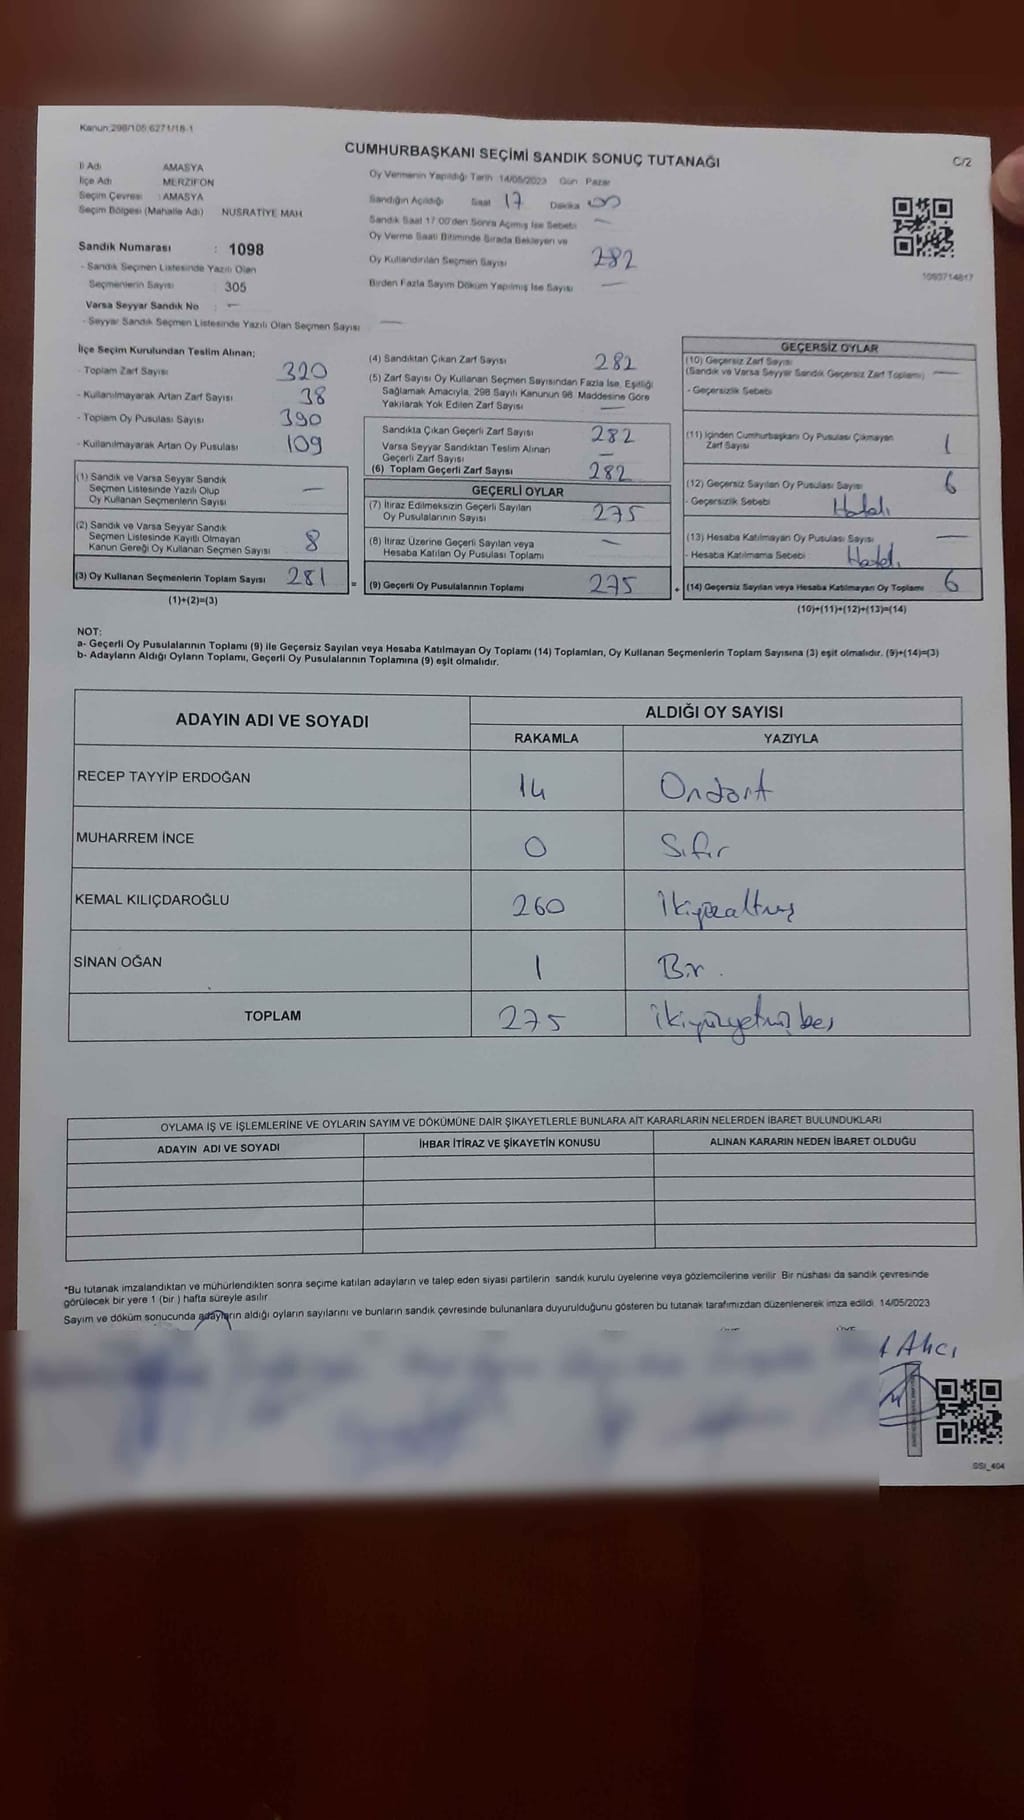 Kanun:298/105;6271/18-1
CUMHURBAŞKANI SEÇİMİ SANDIK SONUÇ TUTANAĞI
C/2
İl Adı AMASYA
İlçe Adı MERZİFON
Seçim Çevresi : AMASYA
Seçim Bölgesi (Mahalle Adı) NUSRATİYE MAH
Sandık Numarası : 1098
- Sandık Seçmen Listesinde Yazılı Olan
Seçmenlerin Sayısı : 305
Varsa Seyyar Sandık No : —
- Seyyar Sandık Seçmen Listesinde Yazılı Olan Seçmen Sayısı —
Oy Vermenin Yapıldığı Tarih 14/05/2023 Gün Pazar
Sandığın Açıldığı Saat 17 Dakika
Sandık Saat 17:00'den Sonra Açılmış İse Sebebi —
Oy Verme Saati Bitiminde Sırada Bekleyen ve
Oy Kullandırılan Seçmen Sayısı 282
Birden Fazla Sayım Döküm Yapılmış İse Sayısı —
1093714817
İlçe Seçim Kurulundan Teslim Alınan;
- Toplam Zarf Sayısı 320
- Kullanılmayarak Artan Zarf Sayısı 38
- Toplam Oy Pusulası Sayısı 390
- Kullanılmayarak Artan Oy Pusulası 109
(1) Sandık ve Varsa Seyyar Sandık
Seçmen Listesinde Yazılı Olup
Oy Kullanan Seçmenlerin Sayısı —
(2) Sandık ve Varsa Seyyar Sandık
Seçmen Listesinde Kayıtlı Olmayan
Kanun Gereği Oy Kullanan Seçmen Sayısı 8
(3) Oy Kullanan Seçmenlerin Toplam Sayısı 281 =
(1)+(2)=(3)
(4) Sandıktan Çıkan Zarf Sayısı 282
(5) Zarf Sayısı Oy Kullanan Seçmen Sayısından Fazla İse, Eşitliği
Sağlamak Amacıyla, 298 Sayılı Kanunun 98. Maddesine Göre
Yakılarak Yok Edilen Zarf Sayısı —
Sandıkta Çıkan Geçerli Zarf Sayısı 282
Varsa Seyyar Sandıktan Teslim Alınan
Geçerli Zarf Sayısı —
(6) Toplam Geçerli Zarf Sayısı 282
GEÇERLİ OYLAR
(7) İtiraz Edilmeksizin Geçerli Sayılan
Oy Pusulalarının Sayısı 275
(8) İtiraz Üzerine Geçerli Sayılan veya
Hesaba Katılan Oy Pusulası Toplamı —
(9) Geçerli Oy Pusulalarının Toplamı 275 +
GEÇERSİZ OYLAR
(10) Geçersiz Zarf Sayısı
(Sandık ve Varsa Seyyar Sandık Geçersiz Zarf Toplamı) —
- Geçersizlik Sebebi
(11) İçinden Cumhurbaşkanı Oy Pusulası Çıkmayan
Zarf Sayısı 1
(12) Geçersiz Sayılan Oy Pusulası Sayısı 6
- Geçersizlik Sebebi Hatalı
(13) Hesaba Katılmayan Oy Pusulası Sayısı —
- Hesaba Katılmama Sebebi Hatalı
(14) Geçersiz Sayılan veya Hesaba Katılmayan Oy Toplamı 6
(10)+(11)+(12)+(13)=(14)
NOT:
a- Geçerli Oy Pusulalarının Toplamı (9) ile Geçersiz Sayılan veya Hesaba Katılmayan Oy Toplamı (14) Toplamları, Oy Kullanan Seçmenlerin Toplam Sayısına (3) eşit olmalıdır. (9)+(14)=(3)
b- Adayların Aldığı Oyların Toplamı, Geçerli Oy Pusulalarının Toplamına (9) eşit olmalıdır.
ADAYIN ADI VE SOYADI
ALDIĞI OY SAYISI
RAKAMLA YAZIYLA
RECEP TAYYİP ERDOĞAN 14 Ondört
MUHARREM İNCE 0 Sıfır
KEMAL KILIÇDAROĞLU 260 İkiyüzaltmış
SİNAN OĞAN 1 Bir.
TOPLAM 275 İkiyüzyetmişbeş
OYLAMA İŞ VE İŞLEMLERİNE VE OYLARIN SAYIM VE DÖKÜMÜNE DAİR ŞİKAYETLERLE BUNLARA AİT KARARLARIN NELERDEN İBARET BULUNDUKLARI
ADAYIN ADI VE SOYADI İHBAR İTİRAZ VE ŞİKAYETİN KONUSU ALINAN KARARIN NEDEN İBARET OLDUĞU
*Bu tutanak imzalandıktan ve mühürlendikten sonra seçime katılan adayların ve talep eden siyasi partilerin sandık kurulu üyelerine veya gözlemcilerine verilir. Bir nüshası da sandık çevresinde
görülecek bir yere 1 (bir ) hafta süreyle asılır
Sayım ve döküm sonucunda adayların aldığı oyların sayılarını ve bunların sandık çevresinde bulunanlara duyurulduğunu gösteren bu tutanak tarafımızdan düzenlenerek imza edildi. 14/05/2023
Ahcı
SSI_404